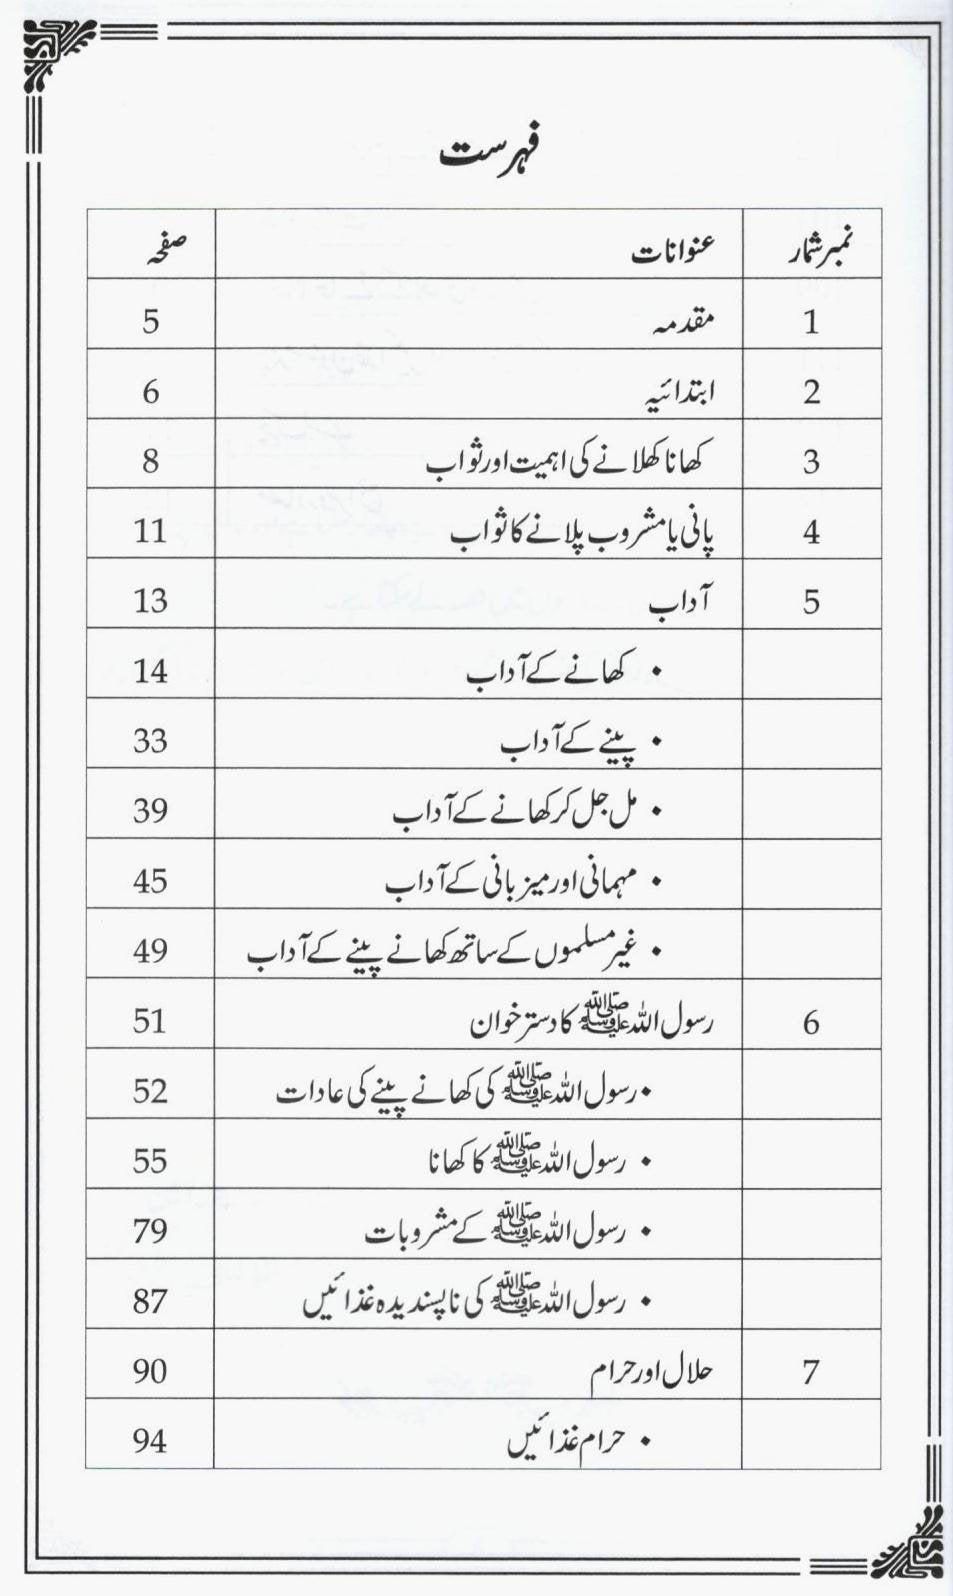 فہرست
نمبر شمار عنوانات صفحہ
1 مقدمہ 5
2 ابتدائیہ 6
3 کھانا کھلانے کی اہمیت اور ثواب 8
4 پانی یا مشروب پلانے کا ثواب 11
5 آداب 13
• کھانے کے آداب 14
• پینے کے آداب 33
• مل جل کر کھانے کے آداب 39
• مہمانی اور میزبانی کے آداب 45
• غیر مسلموں کے ساتھ کھانے پینے کے آداب 49
6 رسول اللہ ﷺ کا دسترخوان 51
• رسول اللہ ﷺ کی کھانے پینے کی عادات 52
• رسول اللہ ﷺ کا کھانا 55
• رسول اللہ ﷺ کے مشروبات 79
• رسول اللہ ﷺ کی ناپسندیدہ غذائیں 87
7 حلال اور حرام 90
• حرام غذائیں 94